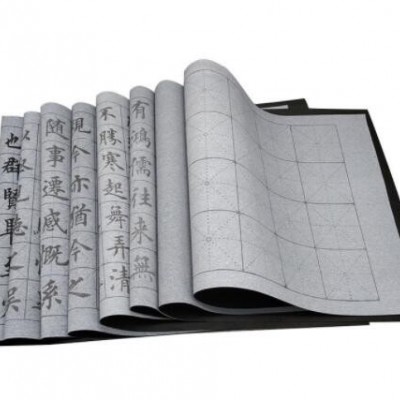 有鴻儒往來無
不勝寒起舞弄清
視今亦猶今之
隨事遷感慨系
也群賢畢至